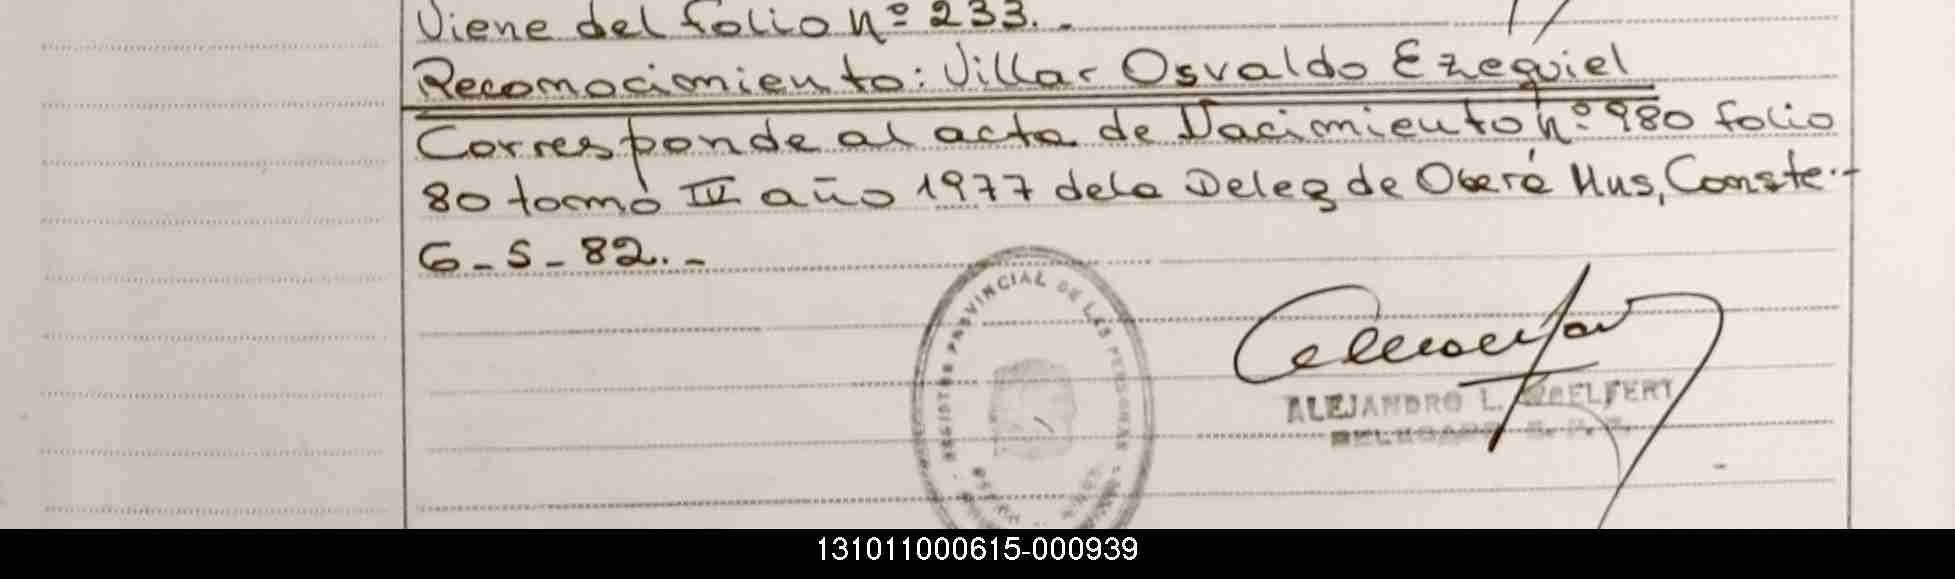 Viene del folio Nº 233.-
Reconocimiento: Villar Osvaldo Ezequiel
Corresponde al acta de Nacimiento Nº 980 folio
80 tomo IV año 1977 dela Deleg de Oberá Mns, Conste.-
6-5-82.-
REGISTRO PROVINCIAL DE LAS PERSONAS
ALEJANDRO L.
131011000615-000939